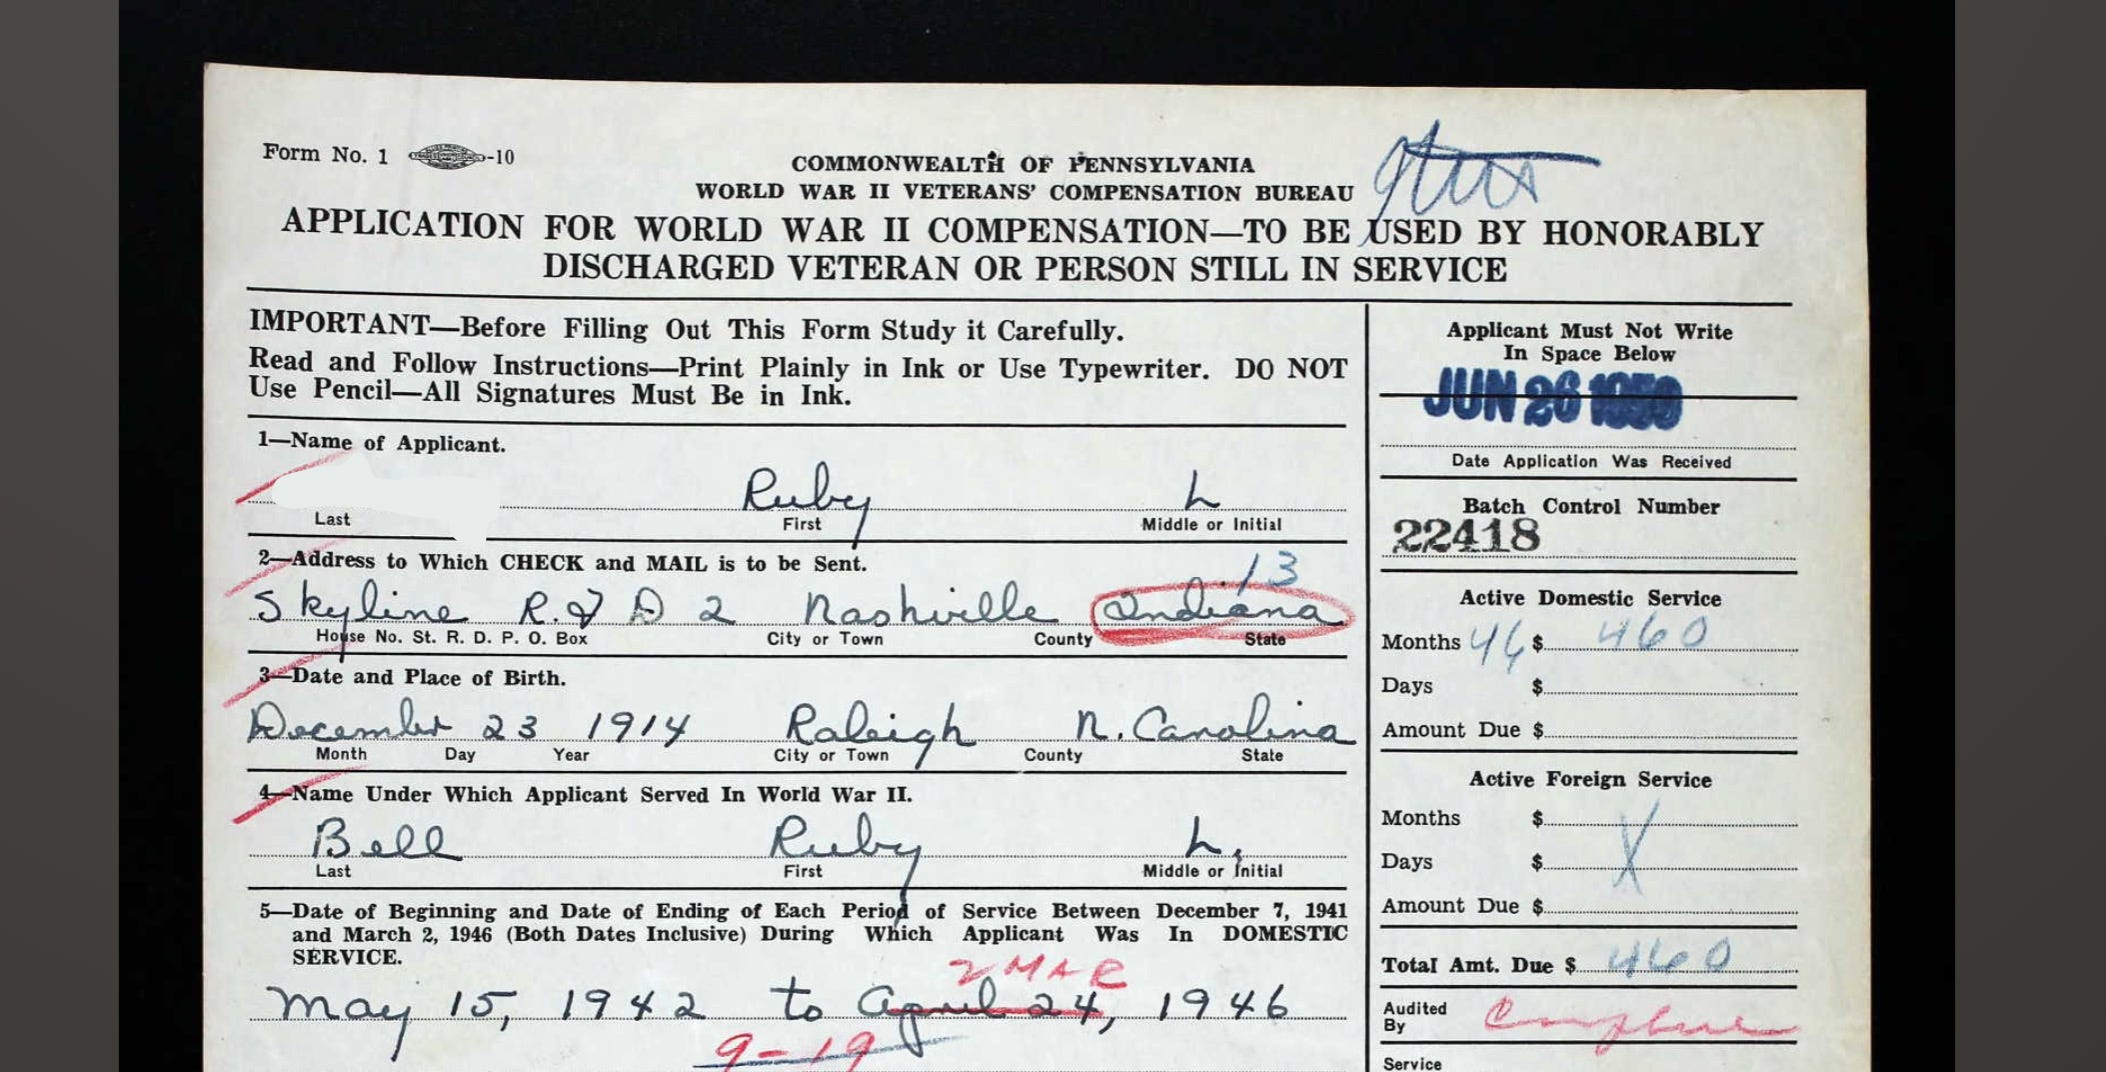 Form No. 1 -10
COMMONWEALTH OF PENNSYLVANIA
WORLD WAR II VETERANS' COMPENSATION BUREAU
APPLICATION FOR WORLD WAR II COMPENSATION—TO BE USED BY HONORABLY
DISCHARGED VETERAN OR PERSON STILL IN SERVICE
IMPORTANT—Before Filling Out This Form Study it Carefully.
Read and Follow Instructions—Print Plainly in Ink or Use Typewriter. DO NOT
Use Pencil—All Signatures Must Be in Ink.
1—Name of Applicant.
Ruby L
Last First Middle or Initial
2—Address to Which CHECK and MAIL is to be Sent.
13
Skyline R. F D 2 Nashville Indiana
House No. St. R. D. P. O. Box City or Town County State
3—Date and Place of Birth.
December 23 1914 Raleigh N. Carolina
Month Day Year City or Town County State
4—Name Under Which Applicant Served In World War II.
Bell Ruby L.
Last First Middle or Initial
5—Date of Beginning and Date of Ending of Each Period of Service Between December 7, 1941
and March 2, 1946 (Both Dates Inclusive) During Which Applicant Was In DOMESTIC
SERVICE.
2 MAR
May 15, 1942 to April 24, 1946
9-19
Applicant Must Not Write
In Space Below
JUN 26 1950
Date Application Was Received
Batch Control Number
22418
Active Domestic Service
Months 46 $ 460
Days $
Amount Due $
Active Foreign Service
Months $
Days $ X
Amount Due $
Total Amt. Due $ 460
Audited
By
Service